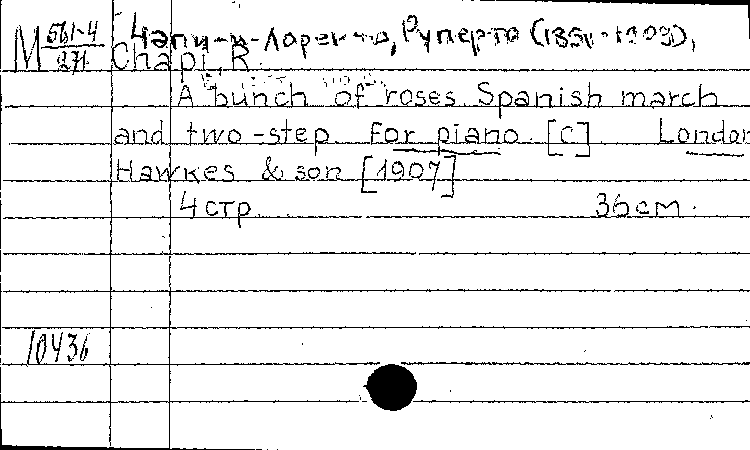 M 561-4/271 Чапи-и-Лоренто, Руперто (1851-1909),
Chapi, R.
A bunch of roses. Spanish march
and two-step. For piano. [C] London
Hawkes & son [1907]
4 стр. 36 см.
10436